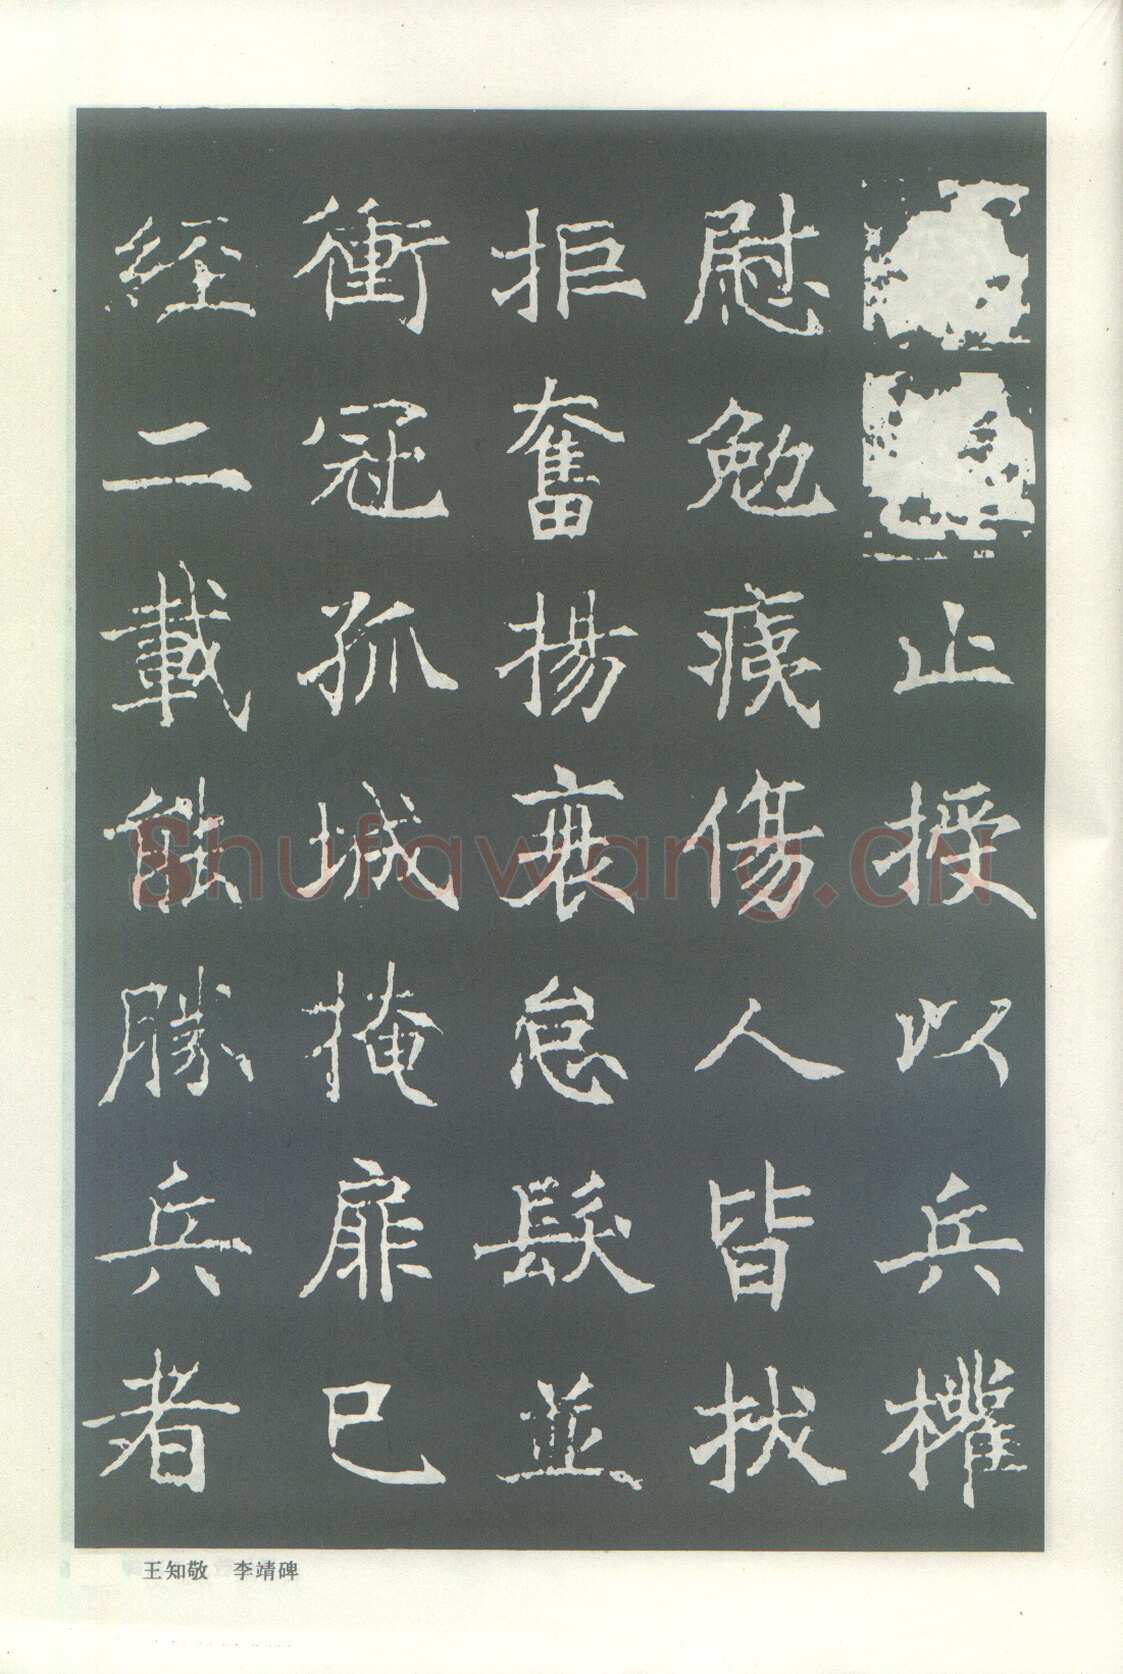 止授以兵權
慰勉痍傷人皆拔
拒奮揚衰怠髮並
衝冠孤城掩扉已
經二載雖勝兵者
王知敬 李靖碑
Shufawang.CN